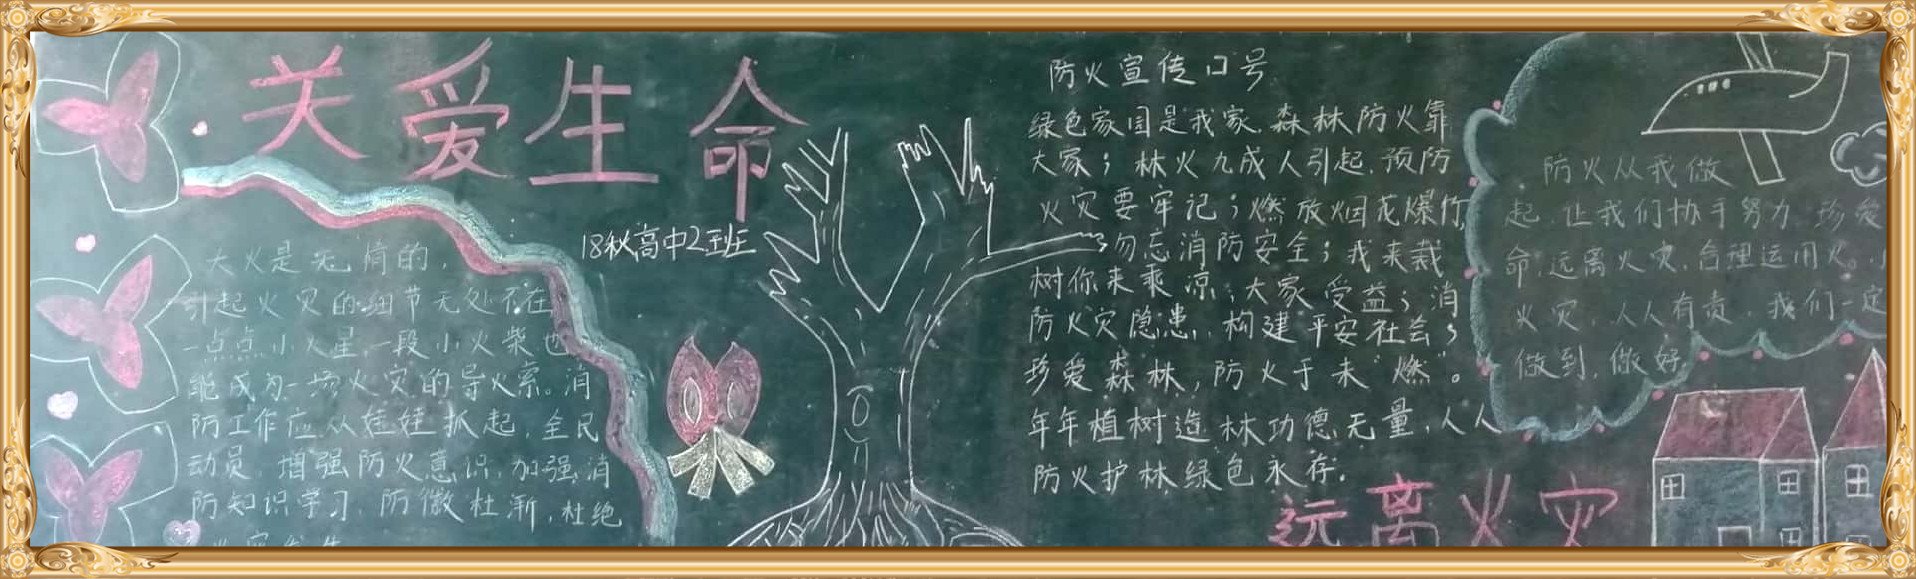 关爱生命
18秋高中2班
大火是无情的，
引起火灾的细节无处不在
一点点小火星一段小火柴也
能成为一场火灾的导火索。消
防工作应从娃娃抓起，全民
动员，增强防火意识，加强消
防知识学习，防微杜渐，杜绝
防火宣传口号
绿色家园是我家，森林防火靠
大家；林火九成人引起，预防
火灾要牢记；燃放烟花爆竹，
勿忘消防安全；我来栽
树你来乘凉；大家受益；消
防火灾隐患，构建平安社会；
珍爱森林，防火于未“燃”。
年年植树造林功德无量，人人
防火护林绿色永存。
防火从我做
起，让我们协手努力，珍爱
命，远离火灾，合理运用火。
火灾，人人有责，我们一定
做到，做好
远离火灾